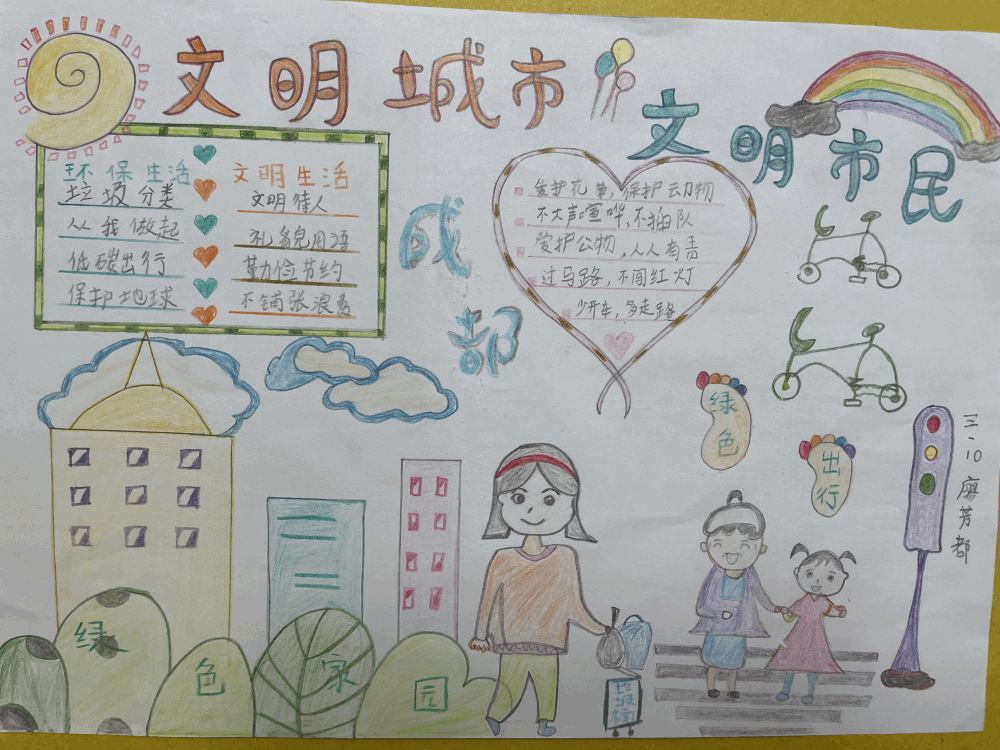 文明城市
文明市民
环保生活
垃圾分类
从我做起
低碳出行
保护地球
文明生活
文明待人
礼貌用语
勤俭节约
不铺张浪费
成都
爱护花草，保护动物
不大声喧哗，不插队
爱护公物，人人有责
过马路，不闯红灯
少开车，多走路
绿色
出行
三.10 廖芳都
绿色家园
垃圾桶